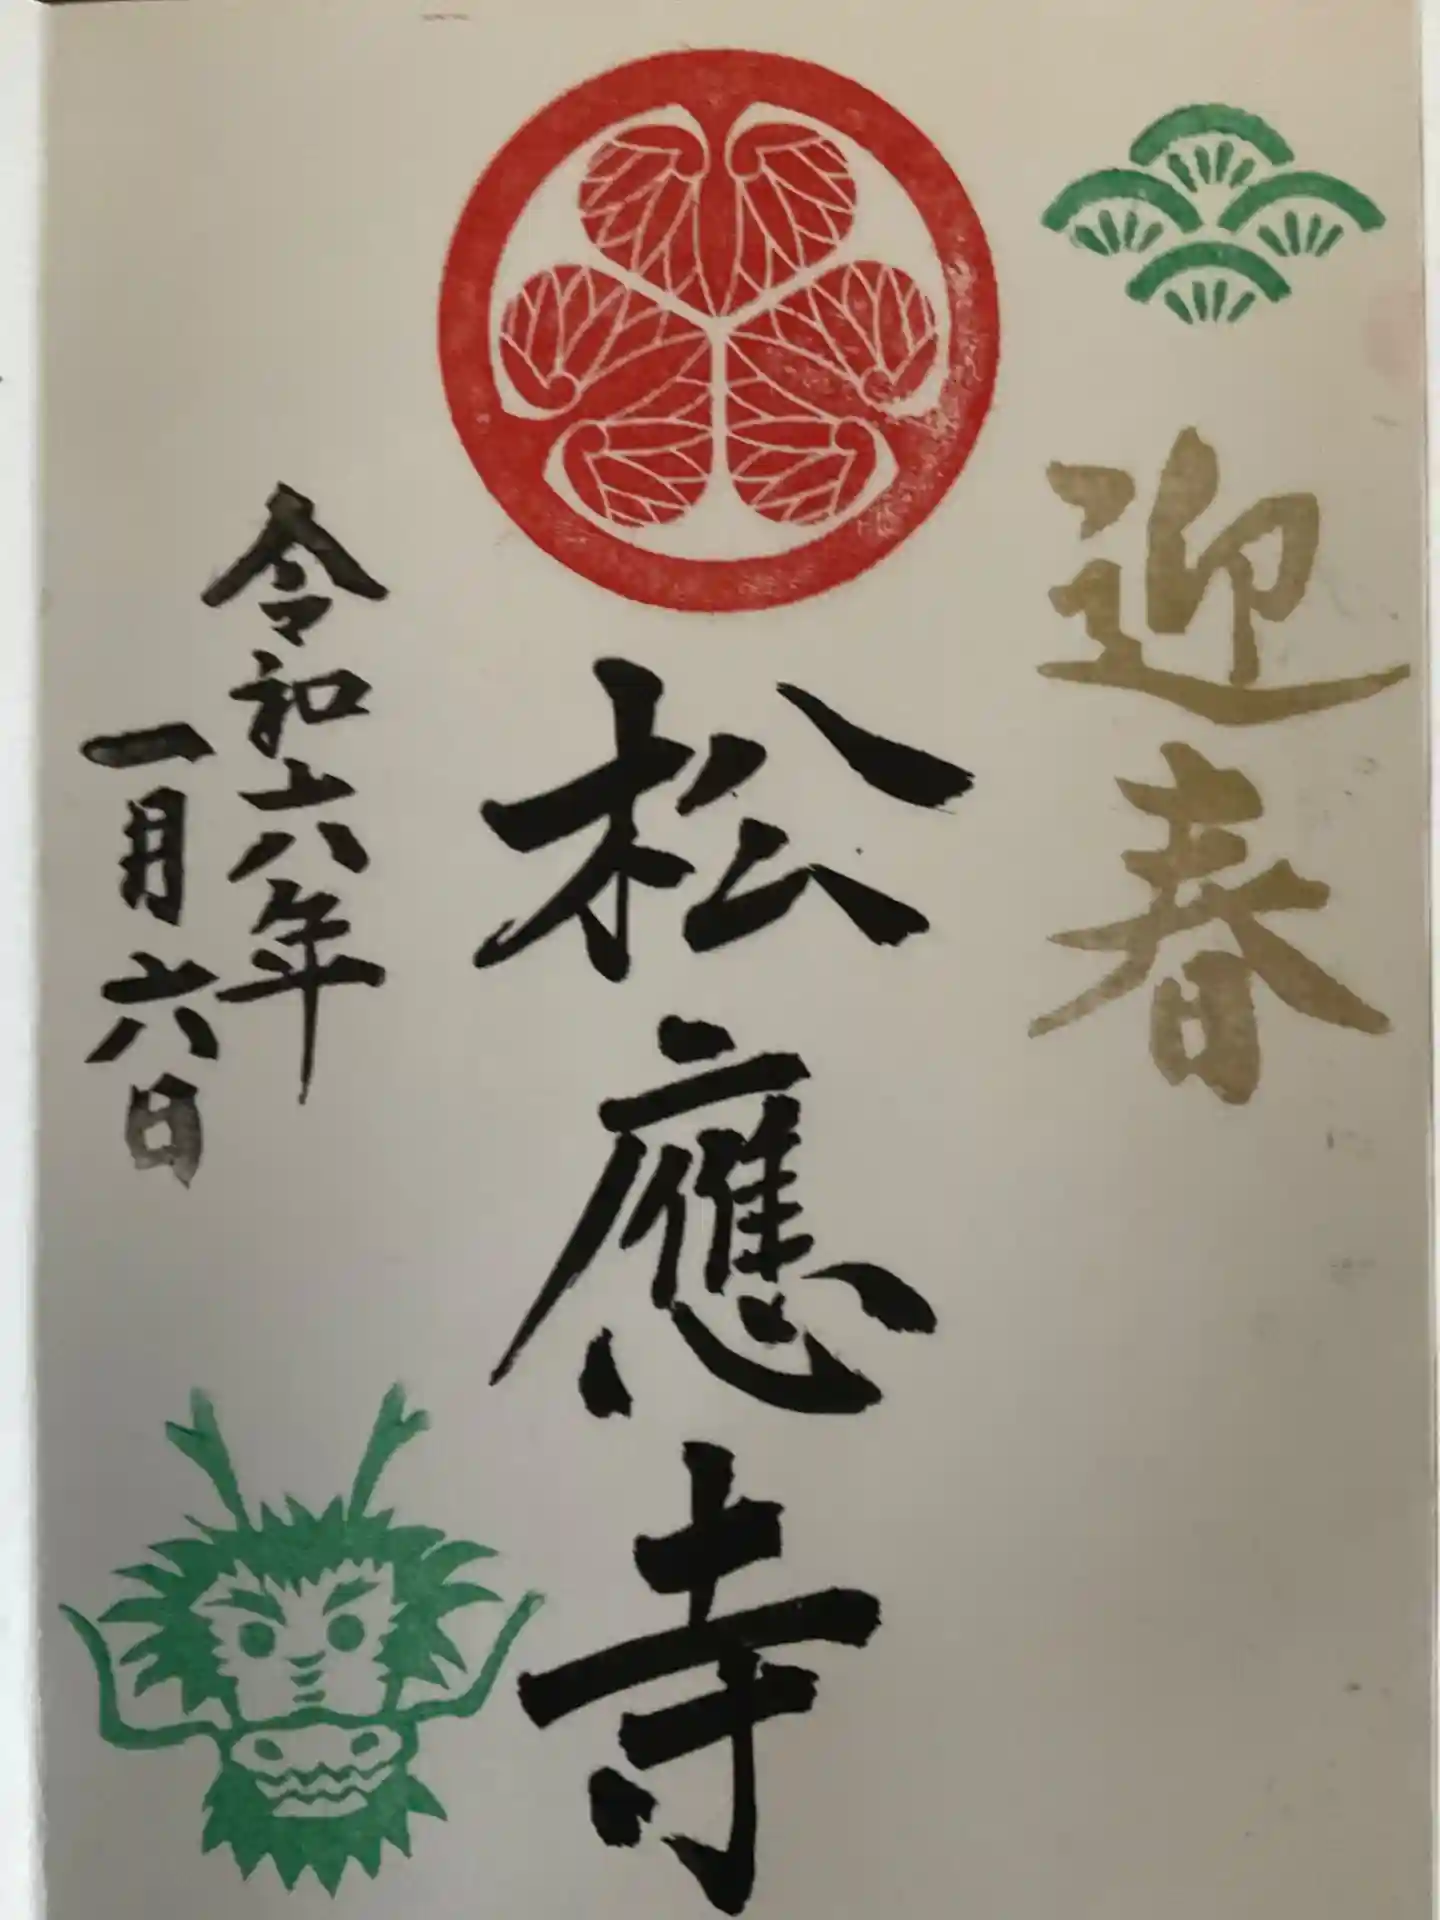 迎春
松應寺
令和六年
一月六日